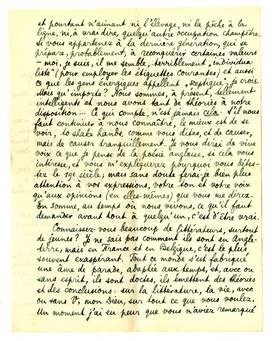 et pourtant n'aimant ni l'élevage, ni la pêche à la
ligne, ni, à vrai dire, quelqu'autre occupation champêtre.
Si vous appartenez à la dernière génération, qui se
prépare, probablement, à reconquérir certaines valeurs
- moi, je suis, il me semble, terriblement, individua
liste (pour employer les étiquettes courantes) et aussi
ce que les gens énergiques appellent "sceptique", je crois.
Mais qu'importe? Nous sommes, à présent, tellement
intelligents et nous avons tant de théories à notre
disposition - ce qui compte, n'est jamais cela. Il nous
faut continuer à nous connaître, le mieux est de se
voir, to shake hands comme vous dites, et de causer,
mais de causer tranquillement. Je vous dirai de vive
voix ce que je pense de la poésie anglaise, si cela vous
intéresse, et vous m'expliquerez pourquoi vous détes-
tez le 19e siècle, mais sans doute ferai-je bien plus
attention à vos expressions, votre ton et votre voix
qu'aux opinions (en elles-mêmes) que vous me direz.
En somme, au temps où nous vivons, ce qu'il faut
demander avant tout à quelqu'un, c'est d'être vrai.
Connaissez-vous beaucoup de littérateurs, surtout
de jeunes? Je ne sais pas comment ils sont en Angle-
terre, mais en France et en Belgique, c'est le plus
souvent exaspérant. Tout ce monde s'est fabriqué
une âme de parade, adaptée aux temps, et, avec ou
sans esprit, ils sont doctes, ils émettent des théories
et des conclusions sur la littérature, la vie, avec
ou sans V, mon Dieu, sur tout ce que vous voulez.
Un moment j'ai eu peur que vous n'aviez remarqué